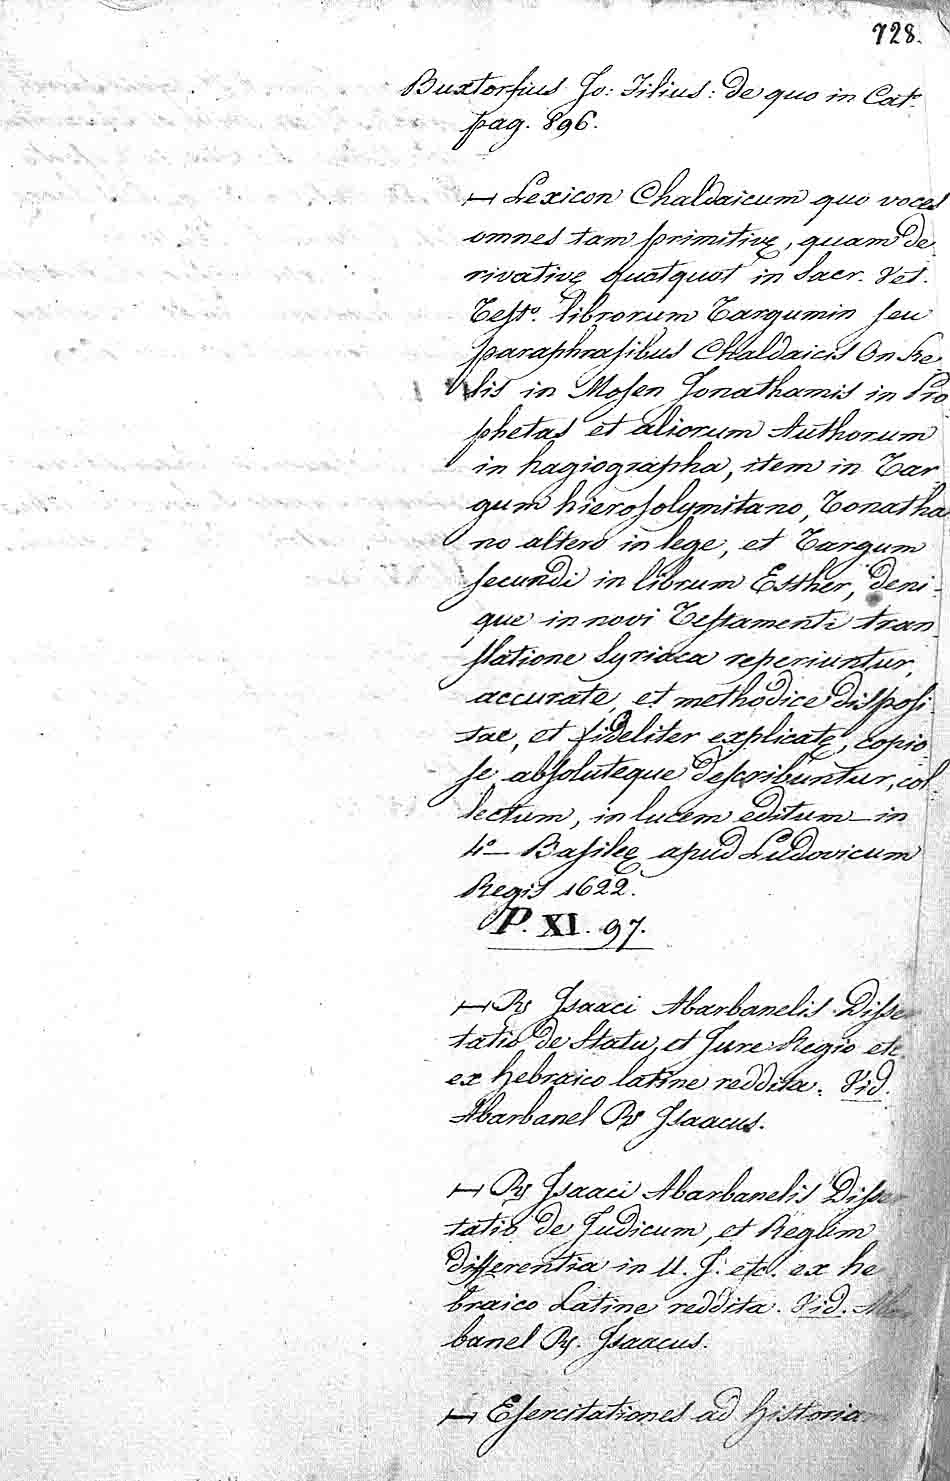 728.
Buxtorfius Jo: Filius: de quo in Cat.
pag. 896.
Lexicon Chaldaicum quo voces
omnes tam primitivę, quam de
rivativę quotquot in Sacr. Vet.
Testo. librorum Targumin seu
paraphrasibus Chaldaicis Onke
lis in Mosen Jonathamis in Pro
phetas et aliorum Authorum
in hagiographa, item in Tar
gum hierosolymitano, Jonatha
no altero in lege, et Targum
secundi in librum Esther, deni-
que in novi Testamenti tran
slatione Syriaca reperiuntur,
accurate, et methodice disposi
tae, et fideliter explicatę, copio
se absoluteque describuntur, col-
lectum, in lucem editum – in
4o – Basileę apud Ludovicum
Regis 1622.
P. XI. 97.
Isaaci Abarbanelis Disse
tatio de Statu, et Jure Regio etc
ex hebraico latine reddita. Vid.
Abarbanel Isaacus.
Isaaci Abarbanelis Disser
tatio de Judicum, et Regum
differentia in U. J. etc. ex he
braico Latine reddita. Vid. Abar
banel Isaacus.
Esercitationes ad historiam